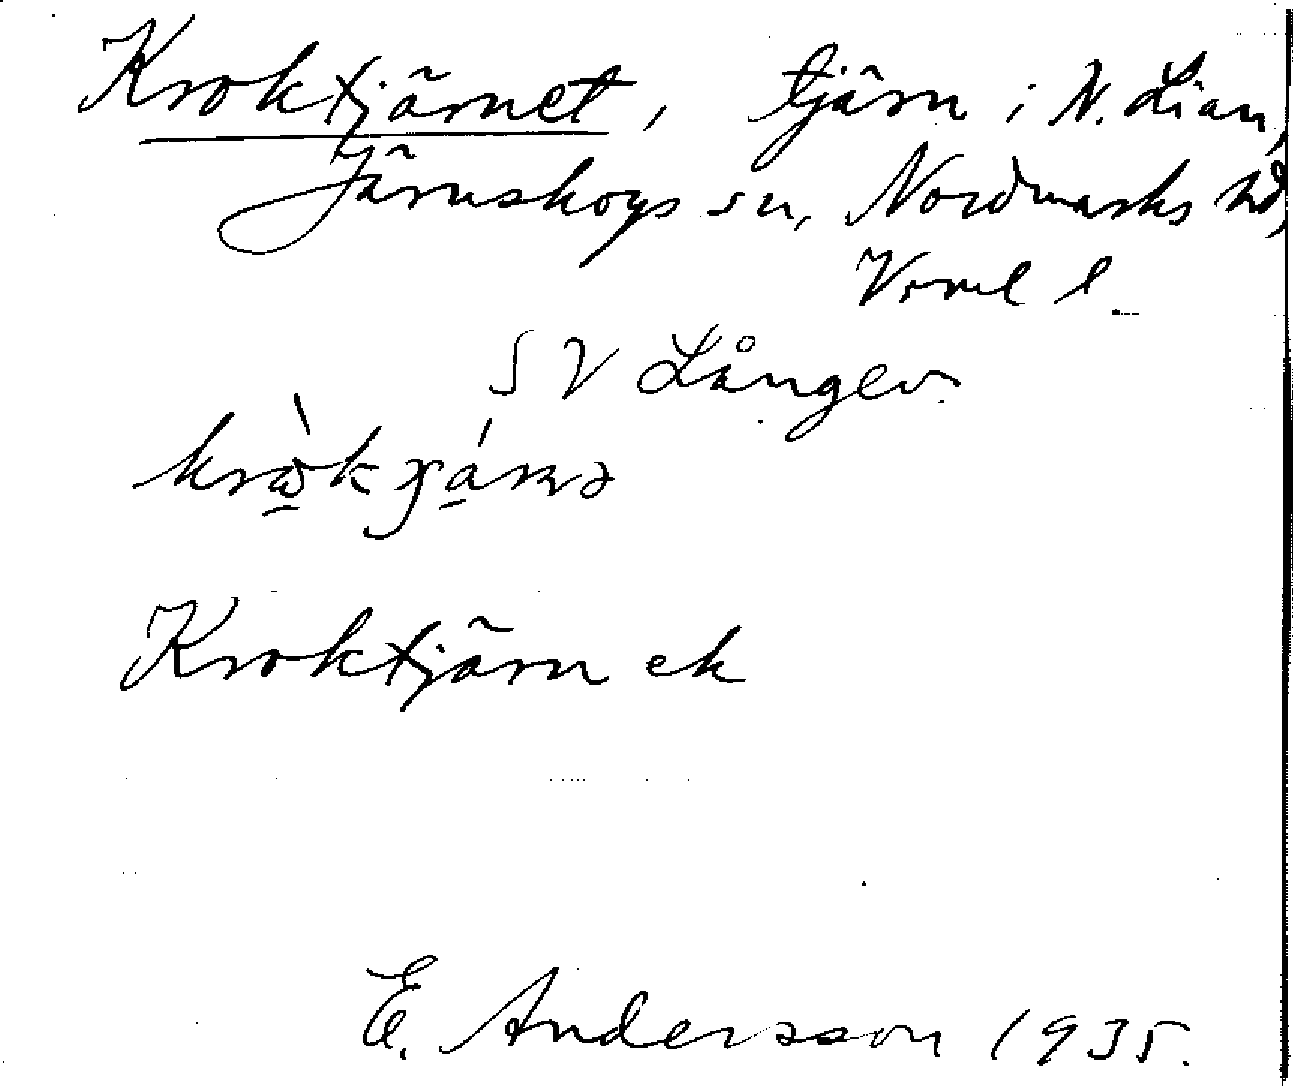 Kroktjärnet, tjärn i N. Lian,
Järnskogs sn, Nordmarks hd,
Värml l.
SV Långev.
Kroktjärn ek
E. Andersson 1935.